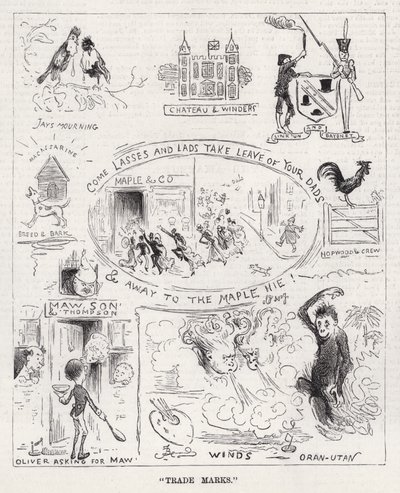 JAYS MOURNING
CHATEAU & WINDERS
LINK'UN AND BAYENET
COME LASSES AND LADS TAKE LEAVE OF YOUR DADS
MAPLE & CO
BREED & BARK
HOPWOOD & CREW
& AWAY TO THE MAPLE HIE!
old song
MAW, SON
& THOMPSON
OLIVER ASKING FOR MAW
WINDS
ORAN-UTAN
"TRADE MARKS."